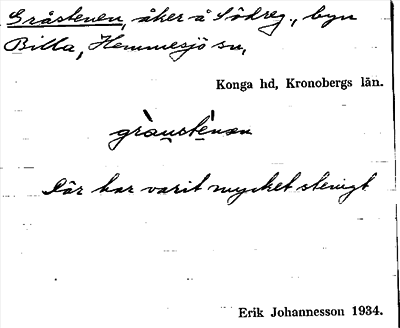 Gråstenen, åker å Södreg., byn
Billa, Hemmesjö sn,
Konga hd, Kronobergs län.
gràusténən
Där har varit mycket stenigt
Erik Johannesson 1934.